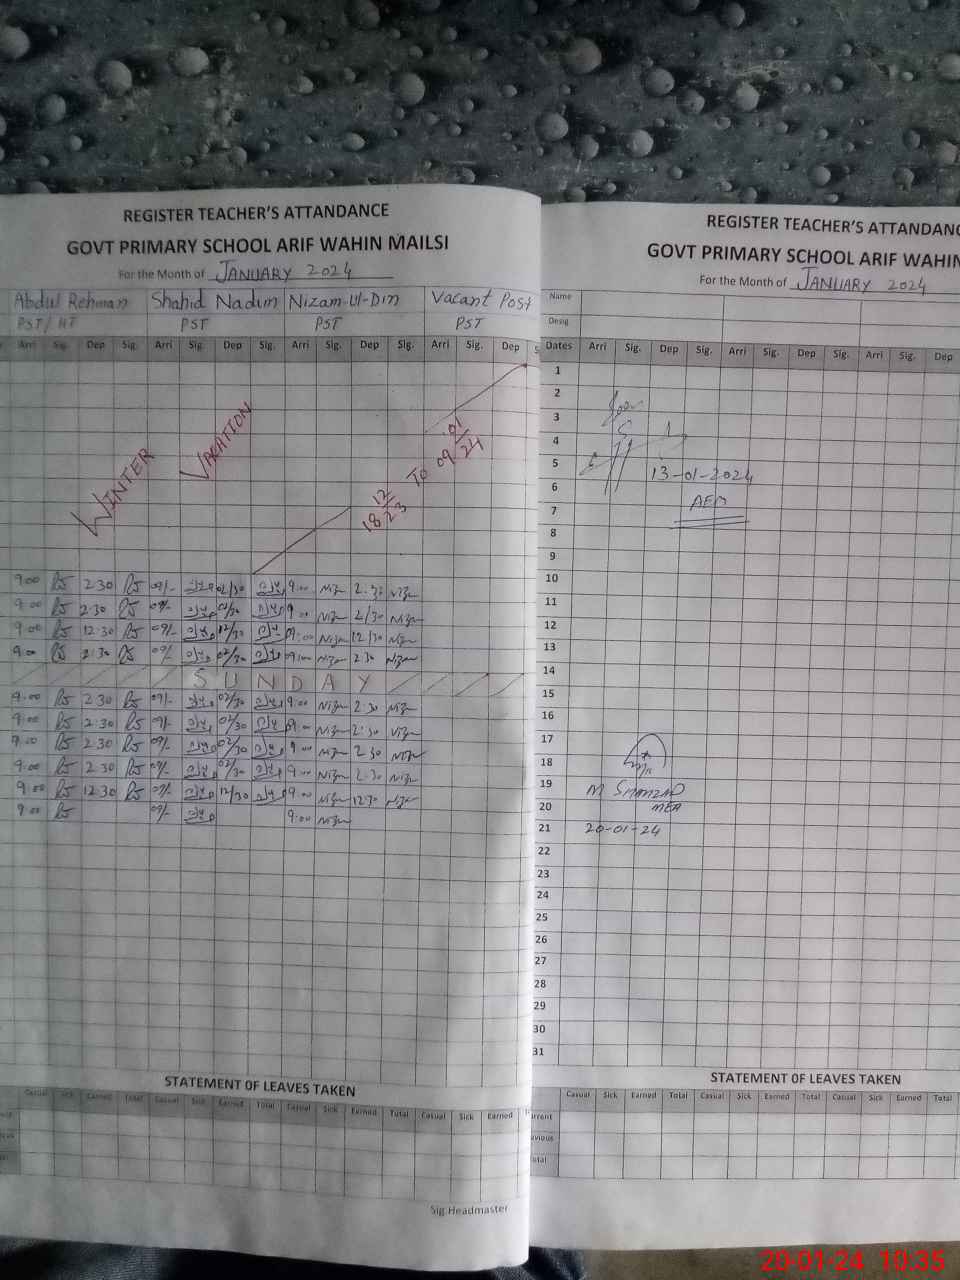 REGISTER TEACHER'S ATTANDANCE
GOVT PRIMARY SCHOOL ARIF WAHIN MAILSI
For the Month of JANUARY 2024
Abdul Rehman Shahid Nadim Nizam-Ul-Din Vacant Post
PST/HT PST PST PST
Arri Sig. Dep Sig. Arri Sig. Dep Sig. Arri Sig. Dep Sig. Arri Sig. Dep S
WINTER VACATION 18 12/23 TO 09 01/24
9:00 2:30 09/- 02/30 9:00 Nizm 2:30 Nizm
9:00 2:30 09/- 02/30 9:00 Nizm 2/30 Nizm
9:00 12:30 09/- 12/30 09:00 Nizm 12/30 Nizm
9:00 2:30 09/- 02/30 09:00 Nizm 2:30 Nizm
SUNDAY
9:00 2:30 09/- 02/30 9:00 Nizm 2:30 Nizm
9:00 2:30 09/- 02/30 09:00 Nizm 2:30 Nizm
9:00 2:30 09/- 02/30 9:00 Nizm 2:30 Nizm
9:00 2:30 09/- 02/30 9:00 Nizm 2:30 Nizm
9:00 12:30 09/- 12/30 9:00 Nizm 12:30 Nizm
9:00 09/- 9:00 Nizm
STATEMENT OF LEAVES TAKEN
Casual Sick Earned Total Casual Sick Earned Total Casual Sick Earned Total Casual Sick Earned
Sig Headmaster
REGISTER TEACHER'S ATTANDANC
GOVT PRIMARY SCHOOL ARIF WAHIN
For the Month of JANUARY 2024
Name
Desig
Dates Arri Sig. Dep Sig. Arri Sig. Dep Sig. Arri Sig. Dep
1
2
3
4
5
13-01-2024
6
AEO
7
8
9
10
11
12
13
14
15
16
17
18
19
M SHAHZAD
20
MEA
21 20-01-24
22
23
24
25
26
27
28
29
30
31
STATEMENT OF LEAVES TAKEN
Casual Sick Earned Total Casual Sick Earned Total Casual Sick Earned Total
urrent
evious
otal
20-01-24 10:35